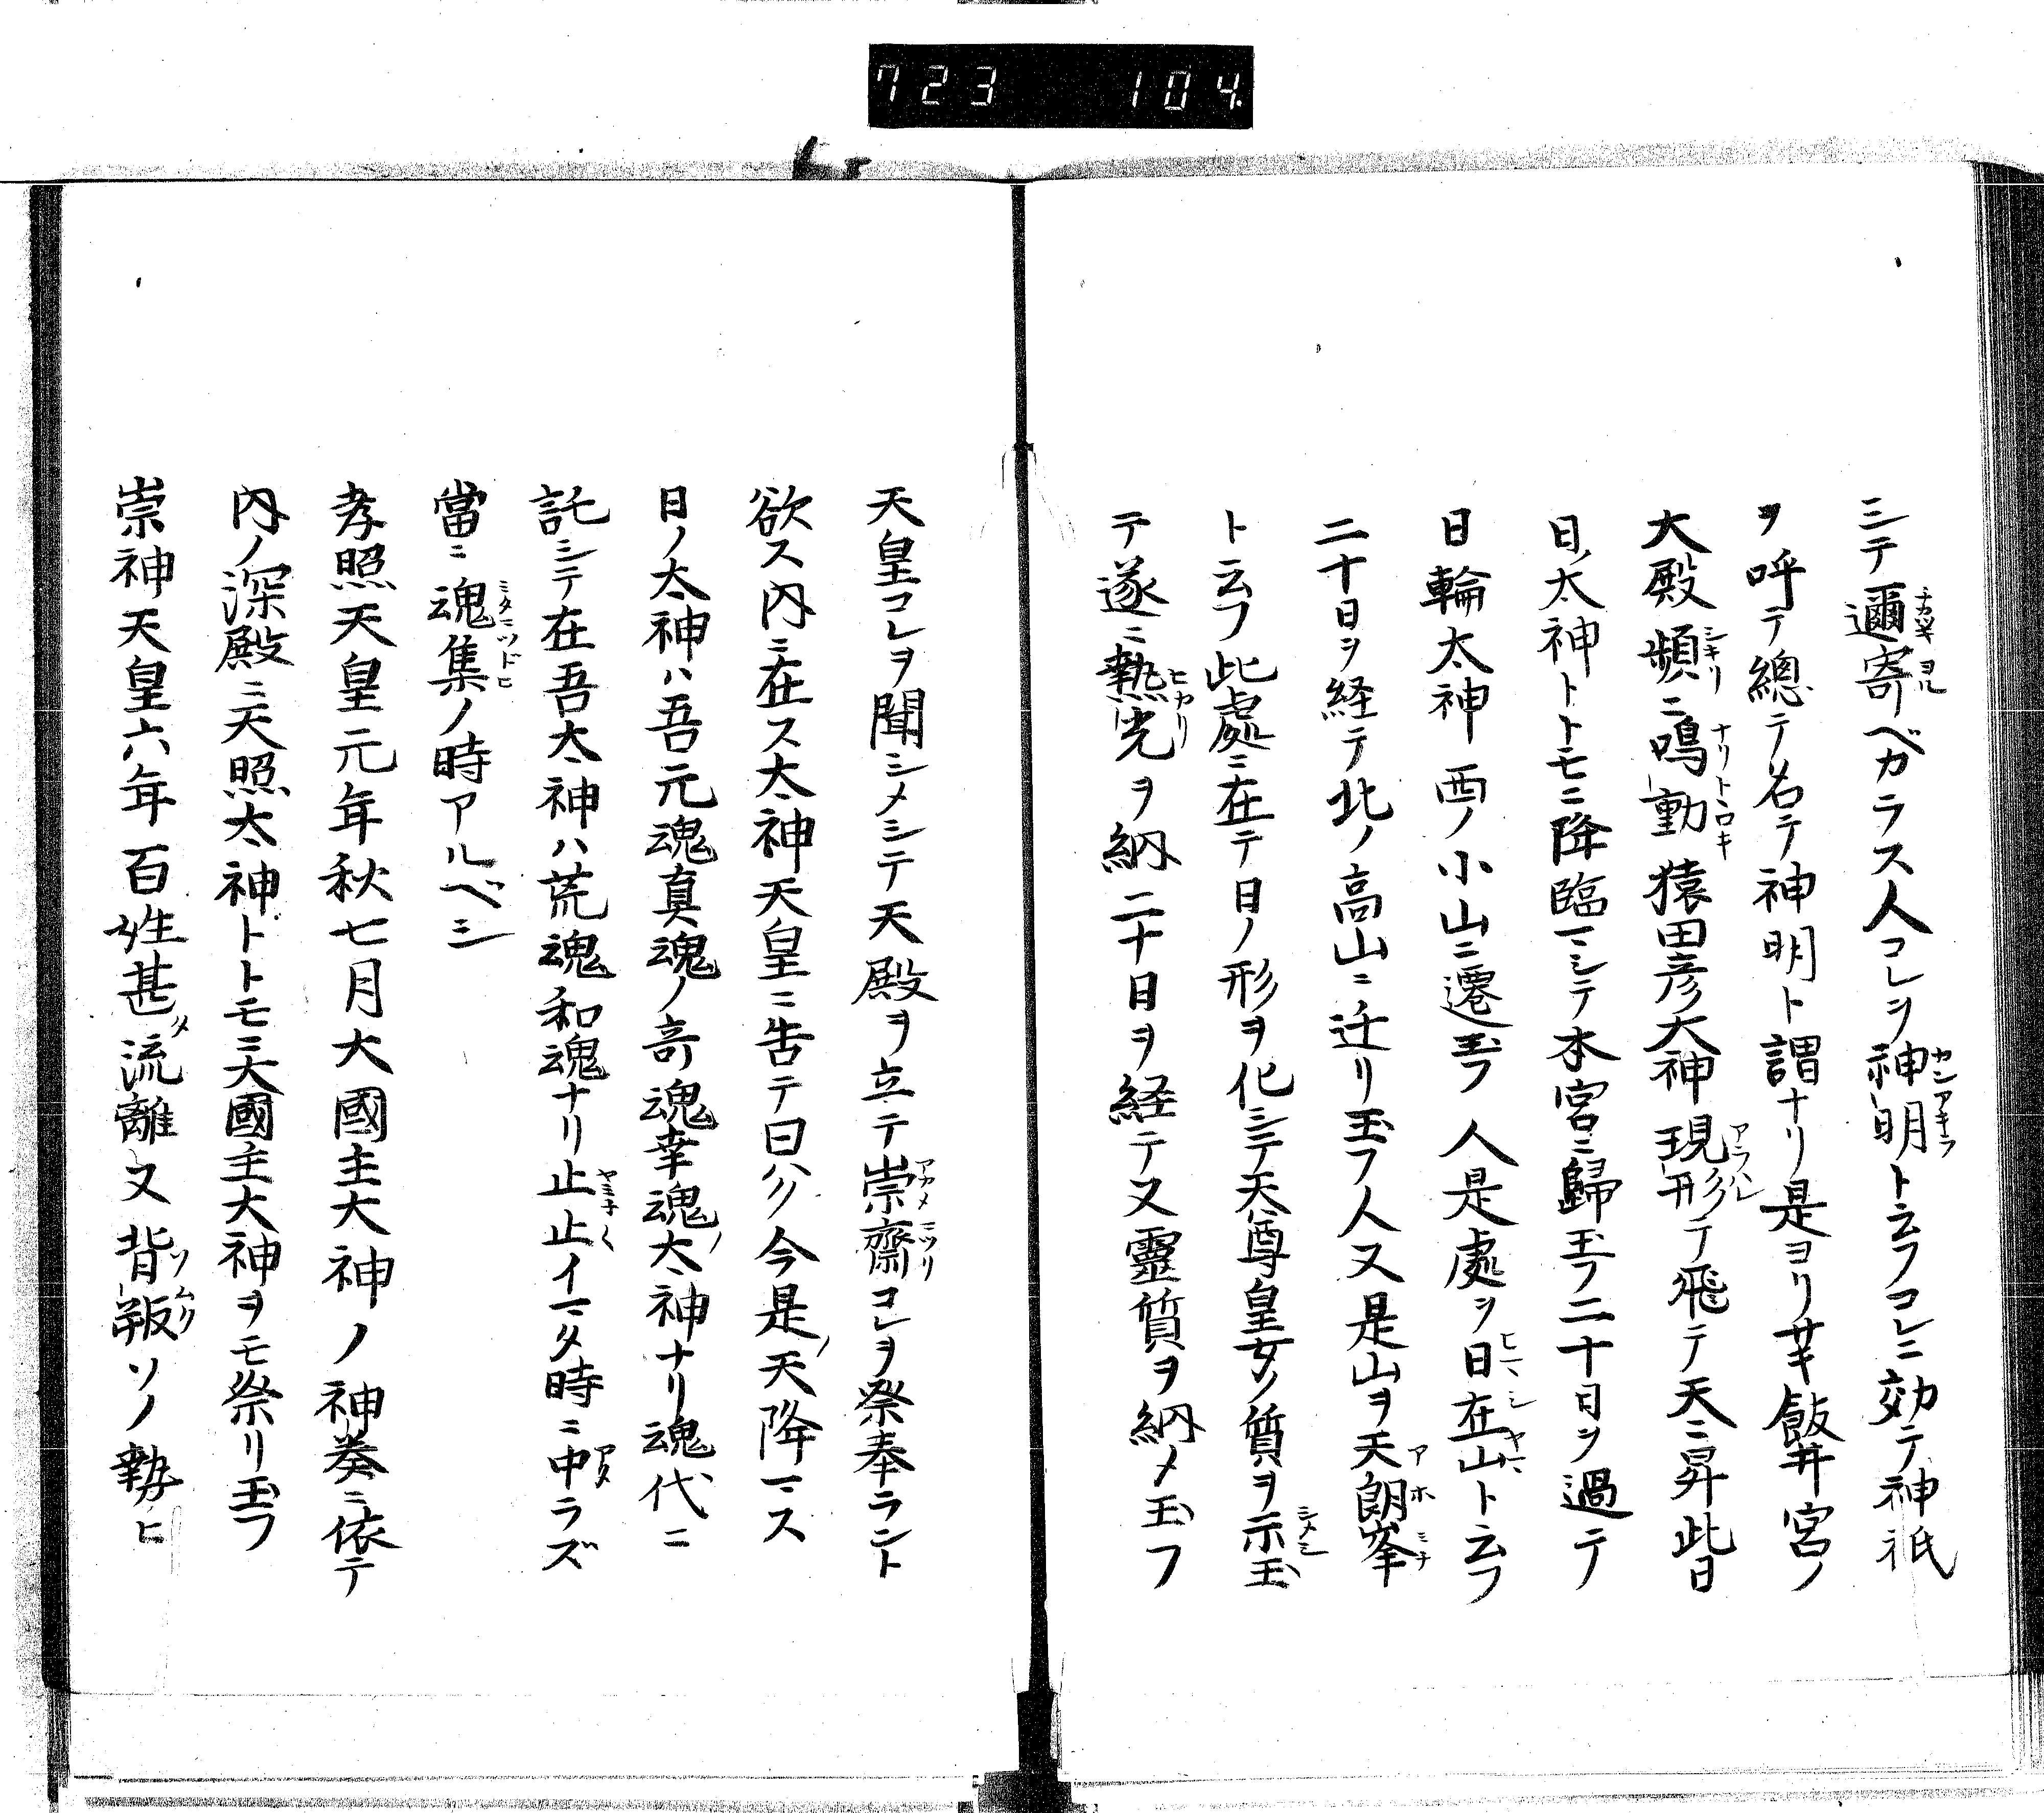 723 104
シテ邇寄ベカラス人コレヲ神明ト云フコレニ効テ神祇
ヲ呼テ總テ名テ神明ト謂ナリ是ヨリサキ飯井宮ノ
大殿頻ニ鳴動猿田彦大神現形テ飛テ天ニ昇此日
日ノ太神トトモニ降臨マシテ本宮ニ歸玉フ二十日ヲ過テ
日輪太神西ノ小山ニ遷玉フ人是處ヲ日在山ト云フ
二十日ヲ経テ北ノ高山ニ迁リ玉フ人又是山ヲ天朗峯
ト云フ此處ニ在テ日ノ形ヲ化シテ天尊皇女ノ質ヲ示玉
テ遂ニ熱光ヲ納二十日ヲ経テ又靈質ヲ納メ玉フ
天皇コレヲ聞シメシテ天殿ヲ立テ崇齋コレヲ祭奉ラント
欲ス内ニ在ス太神天皇ニ告テ曰ハク今是ノ天降マス
日ノ太神ハ吾元魂真魂ノ奇魂幸魂ノ太神ナリ魂代ニ
託シテ在吾太神ハ荒魂和魂ナリ止止イマタ時ニ中ラズ
當ニ魂集ノ時アルベシ
孝照天皇元年秋七月大國主大神ノ神奏ニ依テ
内ノ深殿ニ天照太神トトモニ大國主大神ヲモ祭リ玉フ
崇神天皇六年百姓甚タ流離又背叛ソノ勢ヒ